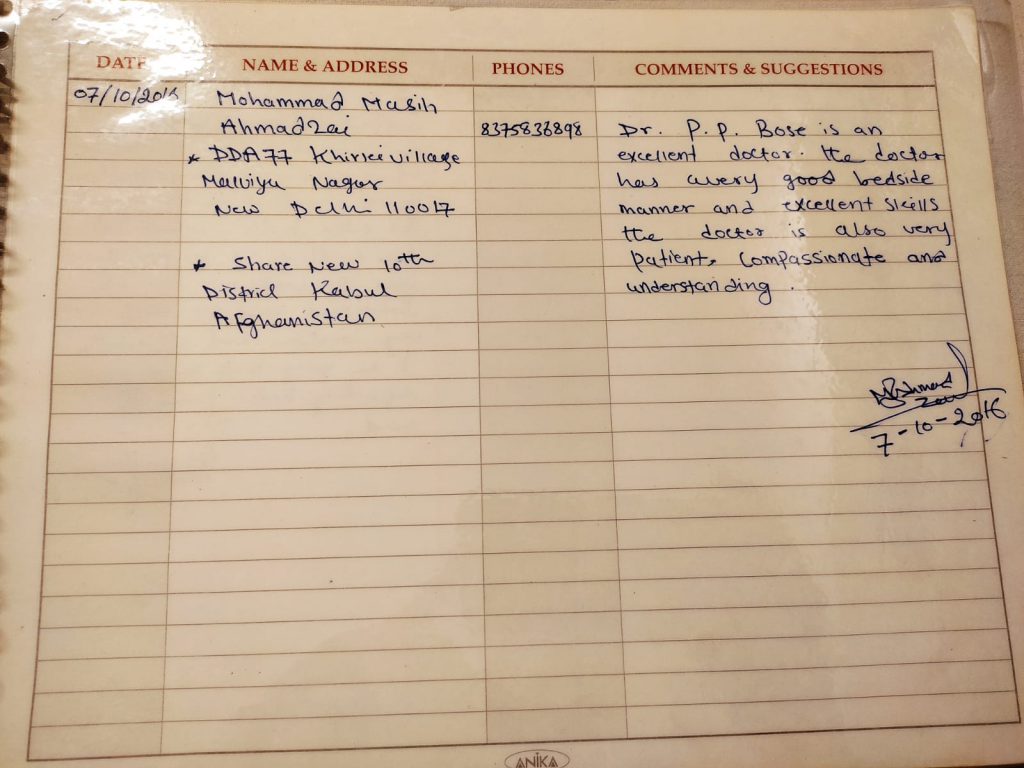 DATE NAME & ADDRESS PHONES COMMENTS & SUGGESTIONS
07/10/2016 Mohammad Masih
Ahmadzai 8375836898 Dr. P.P. Bose is an
* DDA 77 Khirki village excellent doctor. the doctor
Malviya Nagar has a very good bedside
New Delhi 110017 manner and excellent skills
the doctor is also very
* Share New 10th patient, compassionate and
District Kabul understanding.
Afghanistan
7-10-2016
ANIKA